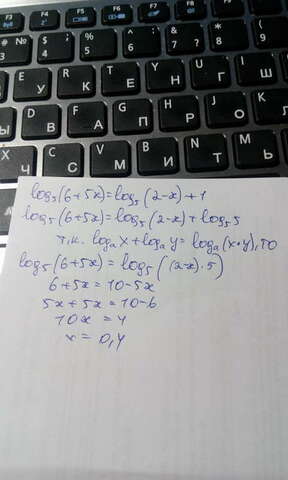 F3 F4 F5 F6 F7 F8 F9
# № 3 $ ; 4 % 5 ^ : 6 & ? 7 * 8
E У R К T Е Y Н U Г I Ш
D В F А G П H Р J О
C С V М B И N Т M Ь
log₅(6+5x)=log₅(2-x)+1
log₅(6+5x)=log₅(2-x)+log₅5
т.к. logₐx+logₐy=logₐ(x·y), то
log₅(6+5x)=log₅((2-x)·5)
6+5x=10-5x
5x+5x=10-6
10x=4
x=0,4